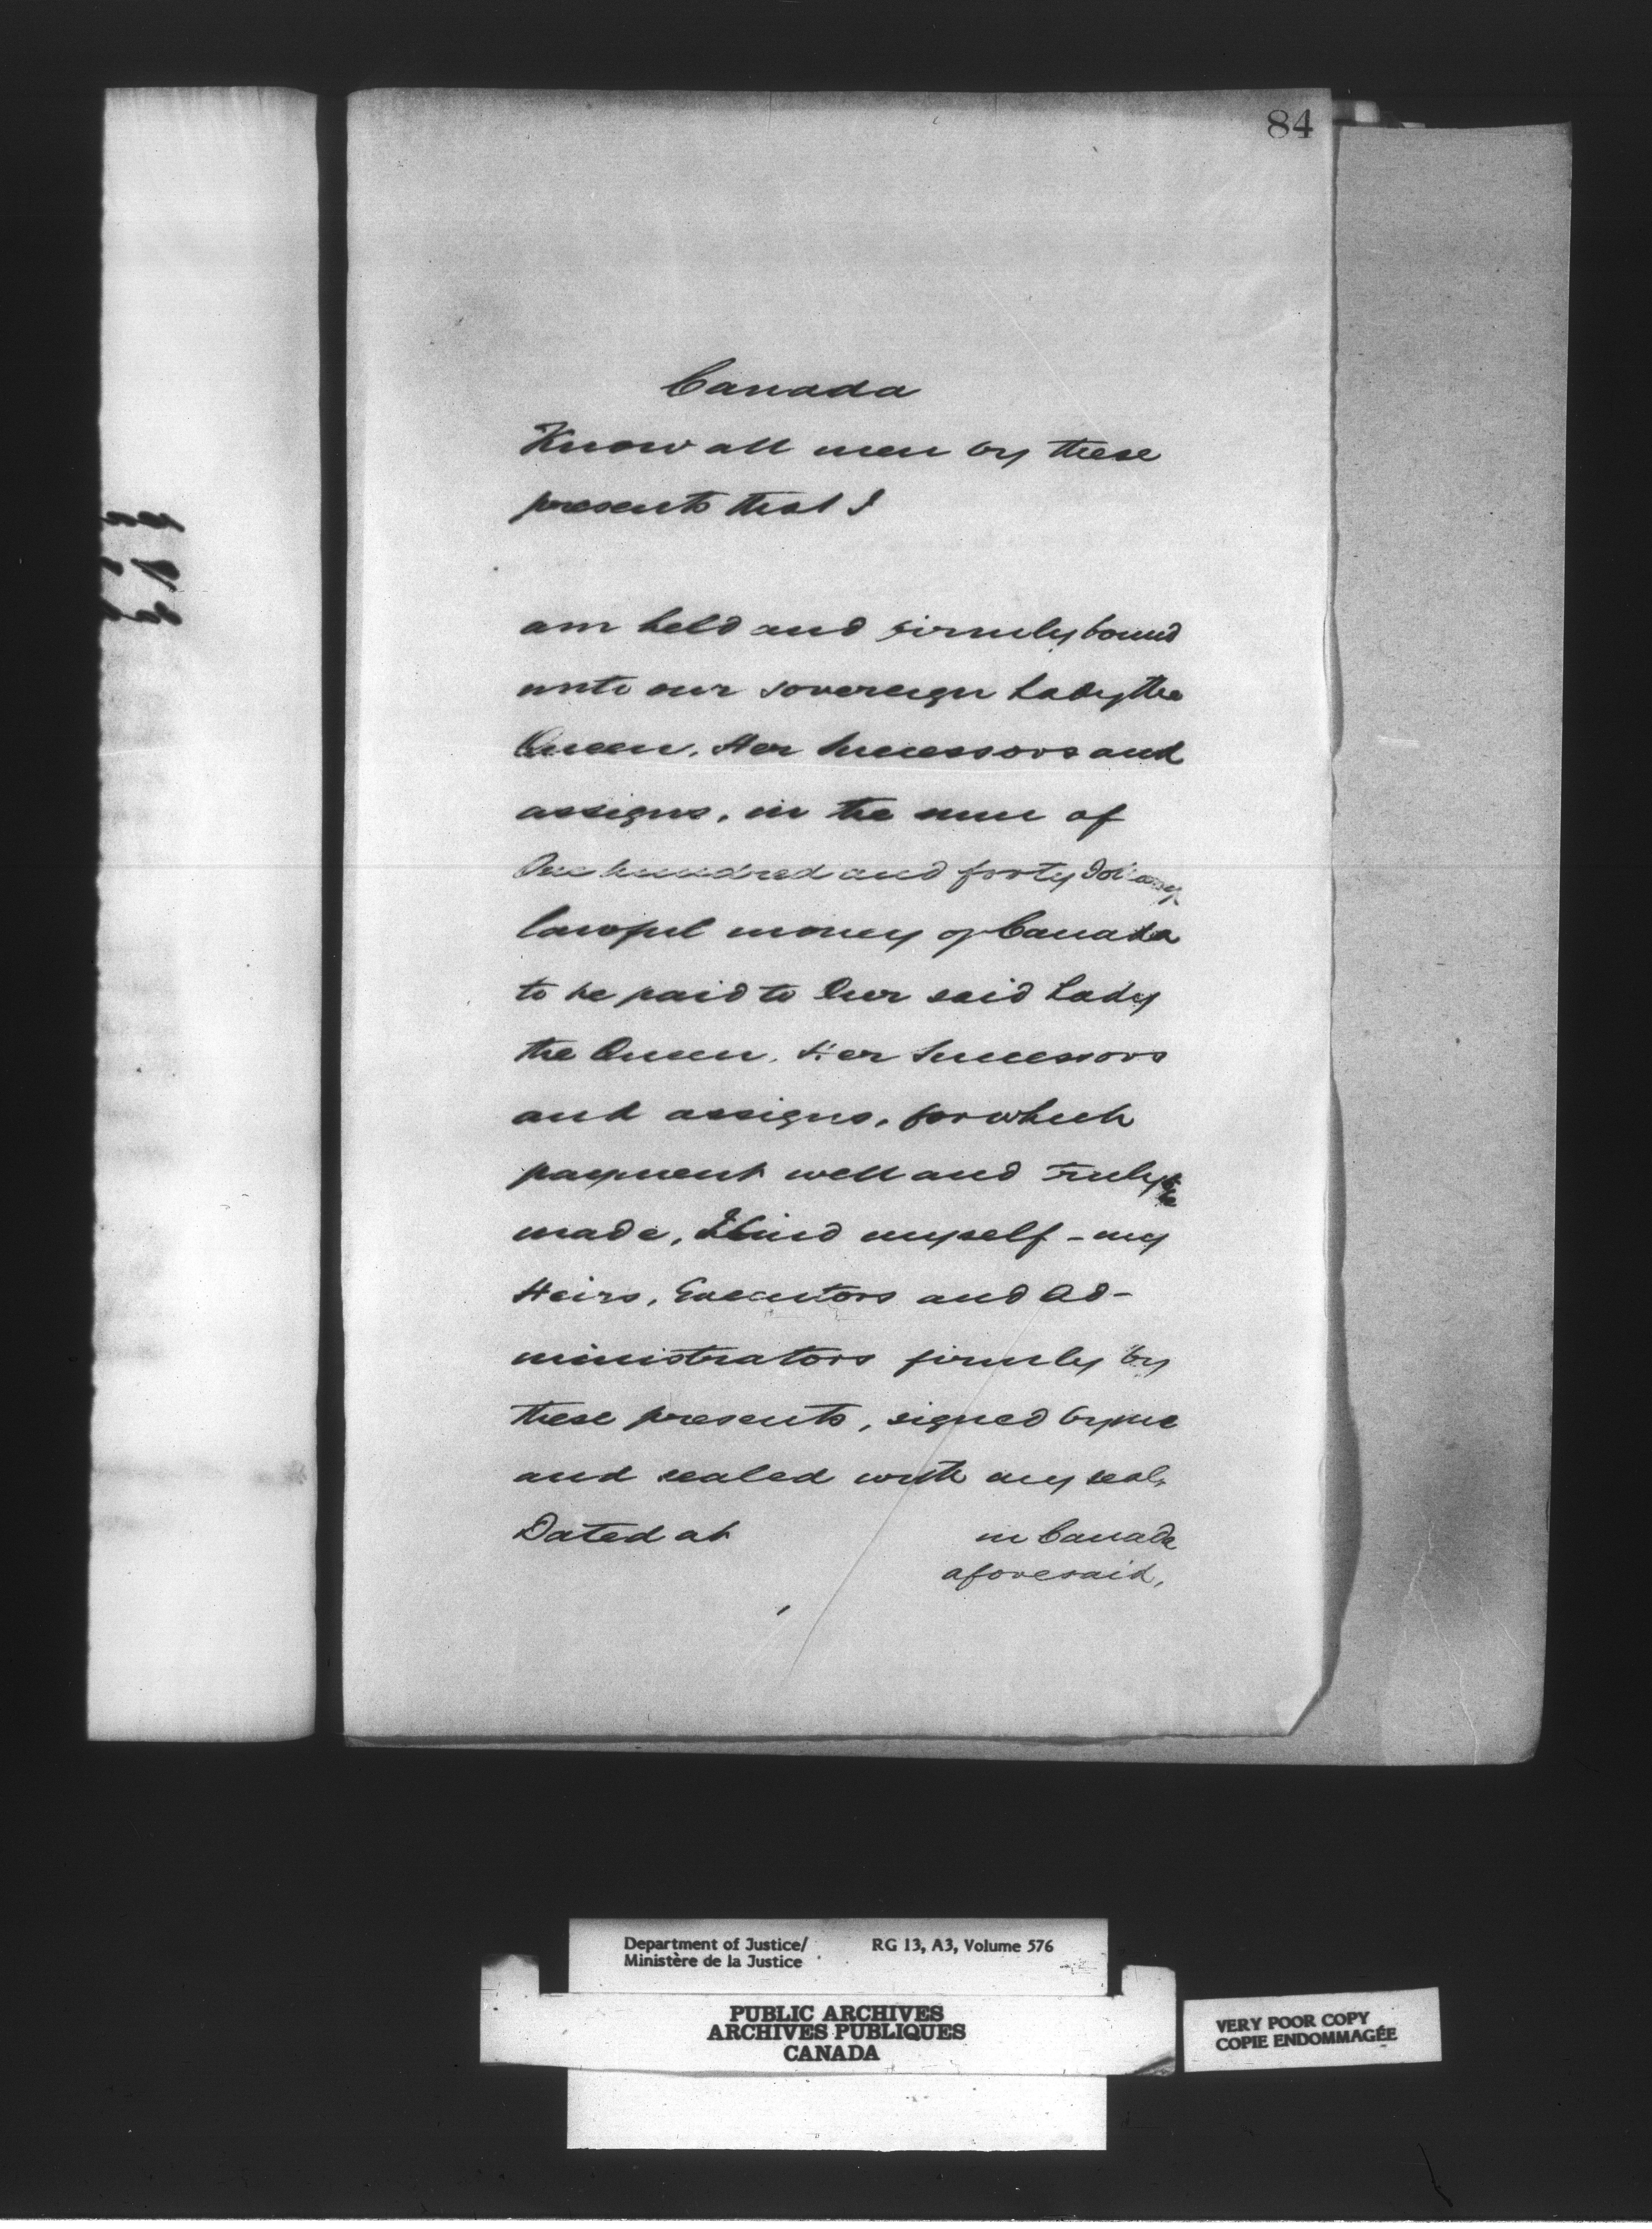 84
Canada
Know all men by these
presents that I
am held and firmly bound
unto our sovereign Lady the
Queen, Her Successors and
assigns, in the sum of
One hundred and forty dollars
lawful money of Canada
to be paid to Our said Lady
the Queen, Her Successors
and assigns, for which
payment well and truly to be
made, I bind myself - my
Heirs, Executors and Ad-
ministrators firmly by
these presents, signed by me
and sealed with my seal,
Dated at in Canada
aforesaid,
Department of Justice/ RG 13, A3, Volume 576
Ministère de la Justice
PUBLIC ARCHIVES
ARCHIVES PUBLIQUES
CANADA
VERY POOR COPY
COPIE ENDOMMAGÉE